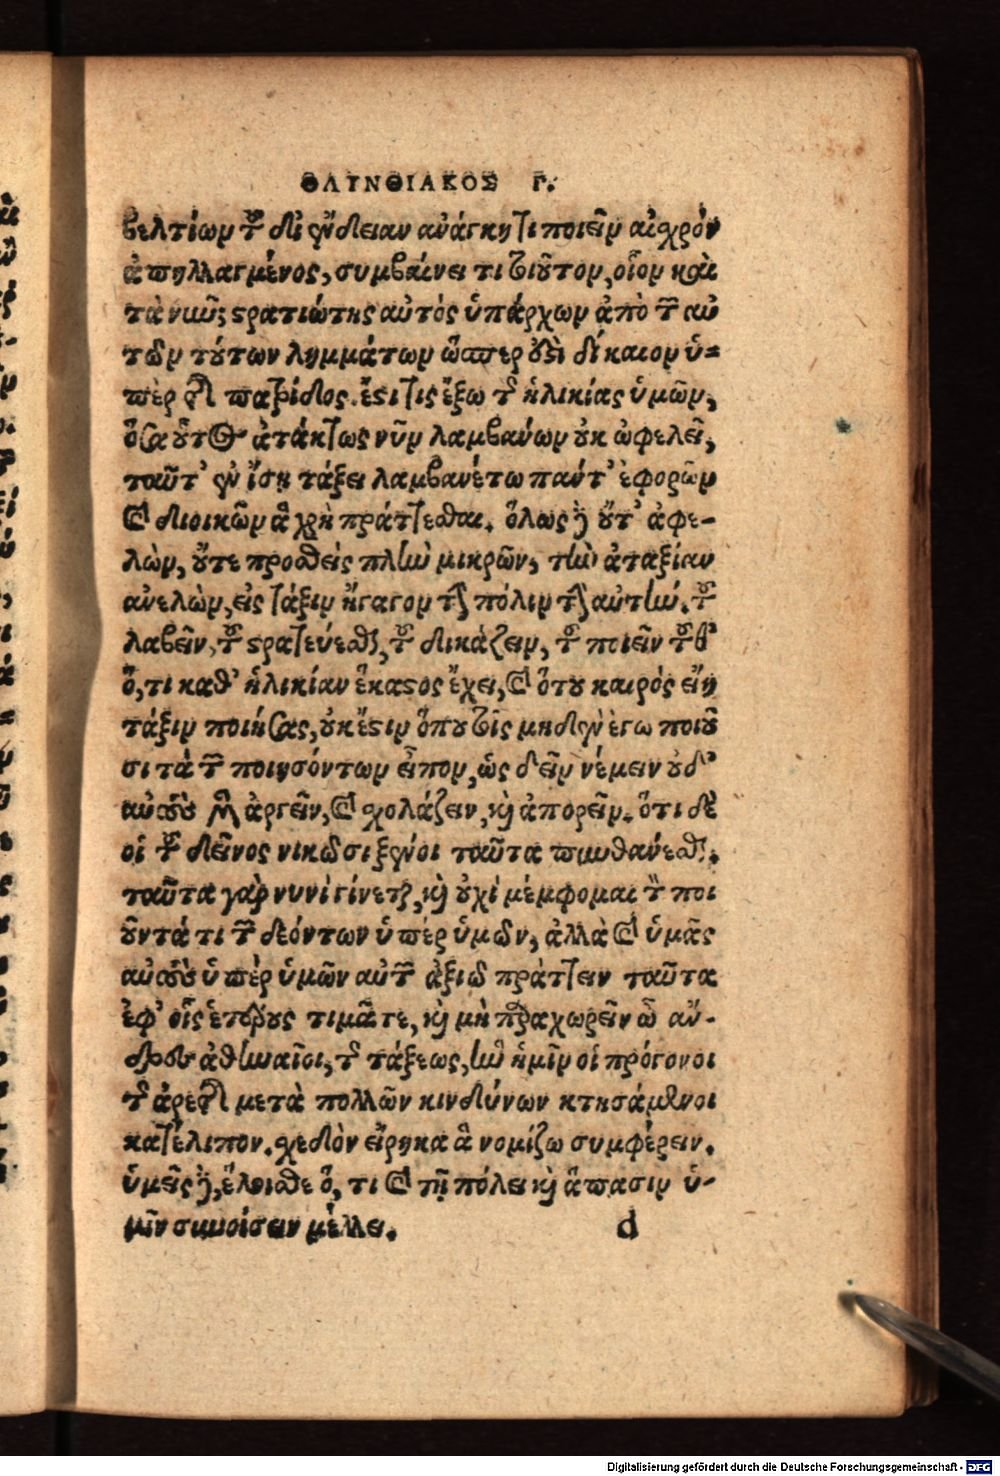 ΟΛΥΝΘΙΑΚΟΣ Γ.
βελτίων τοῦ δι' ἔνδειαν ἀνάγκῃ τι ποιεῖν αἰσχρὸν
ἀπηλλαγμένος, συμβαίνει τι τοιοῦτον, οἷον καὶ
τὰ νῦν; στρατιώτης αὐτὸς ὑπάρχων ἀπὸ τῶν αὐ
τῶν τούτων λημμάτων ὥσπερ ἐστὶ δίκαιον ὑ-
πὲρ τῆς πατρίδος. ἔστι τις ἔξω τῆς ἡλικίας ὑμῶν,
ὅσα οὗτος ἀτάκτως νῦν λαμβάνων οὐκ ὠφελεῖ,
ταῦτ' ἐν ἴσῃ τάξει λαμβανέτω πάντ' ἐφορῶν
καὶ διοικῶν ἃ χρὴ πράττεσθαι. ὅλως δὲ οὔτ' ἀφε-
λὼν, οὔτε προσθεὶς πλὴν μικρῶν, τὴν ἀταξίαν
ἀνελὼν, εἰς τάξιν ἤγαγον τὴν πόλιν τὴν αὐτὴν. τοῦ
λαβεῖν, τοῦ στρατεύεσθαι, τοῦ δικάζειν, τοῦ ποιεῖν τοῦθ'
ὅ, τι καθ' ἡλικίαν ἕκαστος ἔχει, καὶ ὅτου καιρὸς εἴη
τάξιν ποιήσας, οὐκ ἔστιν ὅπου τοῖς μηδὲν ἐγω ποιοῦ
σι τὰ τῶν ποιησόντων εἶπον, ὡς δεῖν νέμειν οὐδ'
αὐτοὺς μὲν ἀργεῖν, καὶ σχολάζειν, καὶ ἀπορεῖν. ὅτι δὲ
οἱ τοῦ δεῖνος νικῶσι ξένοι ταῦτα πυνθάνεσθαι.
ταῦτα γὰρ νυνὶ γίνεται, καὶ οὐχὶ μέμφομαι τὸν ποι
οῦντά τι τῶν δεόντων ὑπὲρ ὑμῶν, ἀλλὰ καὶ ὑμᾶς
αὐτοὺς ὑπὲρ ὑμῶν αὐτῶν ἀξιῶ πράττειν ταῦτα
ἐφ' οἷς ἑτέρους τιμᾶτε, καὶ μὴ παραχωρεῖν ὦ ἄν-
δρες ἀθηναῖοι, τῆς τάξεως, ἣν ἡμῖν οἱ πρόγονοι
τῆς ἀρετῆς μετὰ πολλῶν κινδύνων κτησάμενοι
κατέλιπον. σχεδὸν εἴρηκα ἃ νομίζω συμφέρειν.
ὑμεῖς δὲ, ἕλοισθε ὅ, τι καὶ τῇ πόλει καὶ ἅπασιν ὑ-
μῖν συνοίσειν μέλλει. d
Digitalisierung gefördert durch die Deutsche Forschungsgemeinschaft - DFG